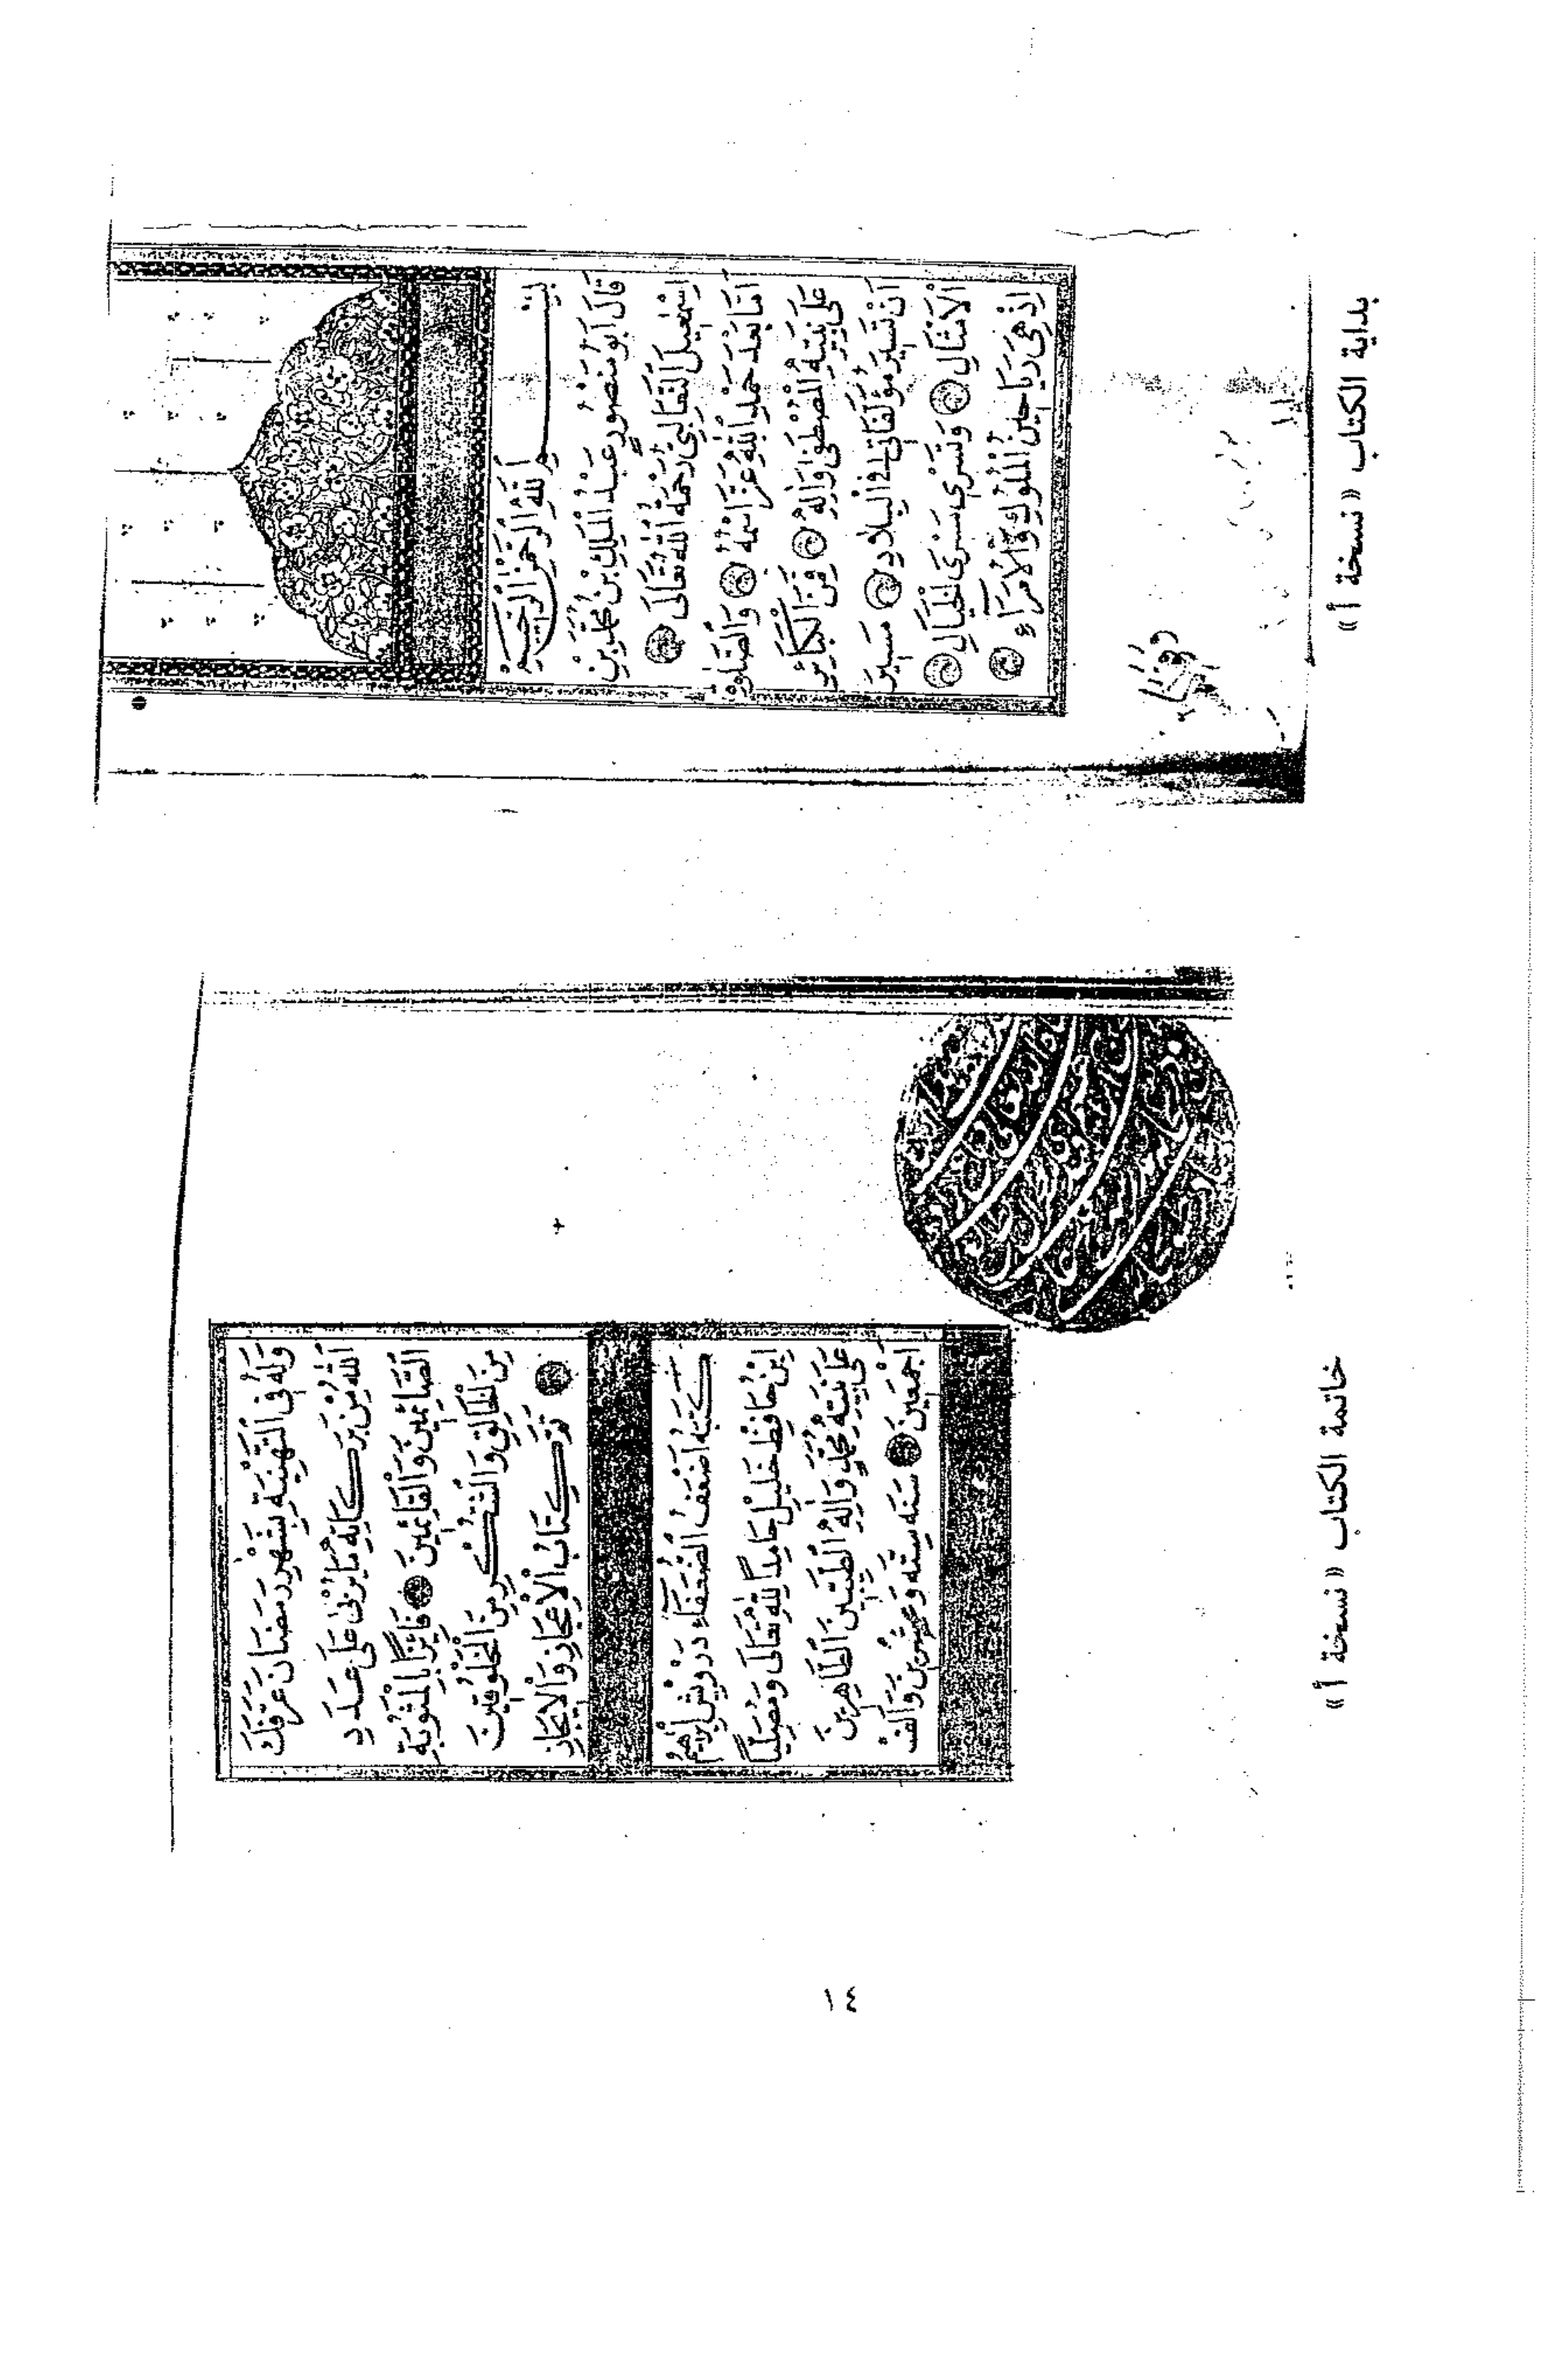 بِسْمِ اللّٰهِ الرَّحْمٰنِ الرَّحِيمِ
قَالَ اَبُو مَنْصُورٍ عَبْدُ الْمَلِكِ بْنُ مُحَمَّدِ بْنِ
اِسْمٰعِيلَ الثَّعَالِبِيُّ رَحْمَةُ اللّٰهِ تَعَالَى
اَمَّا بَعْدَ حَمْدِ اللّٰهِ عَزَّ اسْمُهُ وَالصَّلٰوةِ
عَلَى نَبِيِّهِ الْمُصْطَفَى وَاٰلِهِ فَمِنَ الْكَبَائِرِ
اَنْ تَسِيرَ مُؤَلَّفَاتِي فِي الْبِلَادِ مَسِيرَ
الْاَمْثَالِ وَتَسْرِي مَسْرَى الْخَيَالِ
اِذْ هِيَ رَيَاحِينُ الْمُلُوكِ وَالْاُمَرَاءِ
بداية الكتاب « نسخة أ »
وَلَهُ فِي التَّهْنِيَةِ بِشَهْرِ رَمَضَانَ عَرَّفَكَ
اللّٰهُ مِنْ بَرَكَاتِهِ مَا يُرْبَى عَلَى عَدَدِ
الصَّائِمِينَ وَالْقَائِمِينَ فَائِزًا بِالْمَثُوبَةِ
مِنَ الْخَالِقِ وَالشُّكْرِ مِنَ الْمَخْلُوقِينَ
تَمَّ كِتَابُ الْاِعْجَازِ وَالْاِيجَازِ
كَتَبَهُ اَضْعَفُ الضُّعَفَاءِ دَرْوِيشْ اِبْرٰهِيمُ
ابْنُ حَافِظْ خَلِيلْ حَامِدًا لِلّٰهِ تَعَالَى وَمُصَلِّيًا
عَلَى نَبِيِّهِ مُحَمَّدٍ وَاٰلِهِ الطَّيِّبِينَ الطَّاهِرِينَ
اَجْمَعِينَ سَنَةَ سِتَّةَ وَعِشْرِينَ وَاَلْف
خاتمة الكتاب « نسخة أ »
١٤